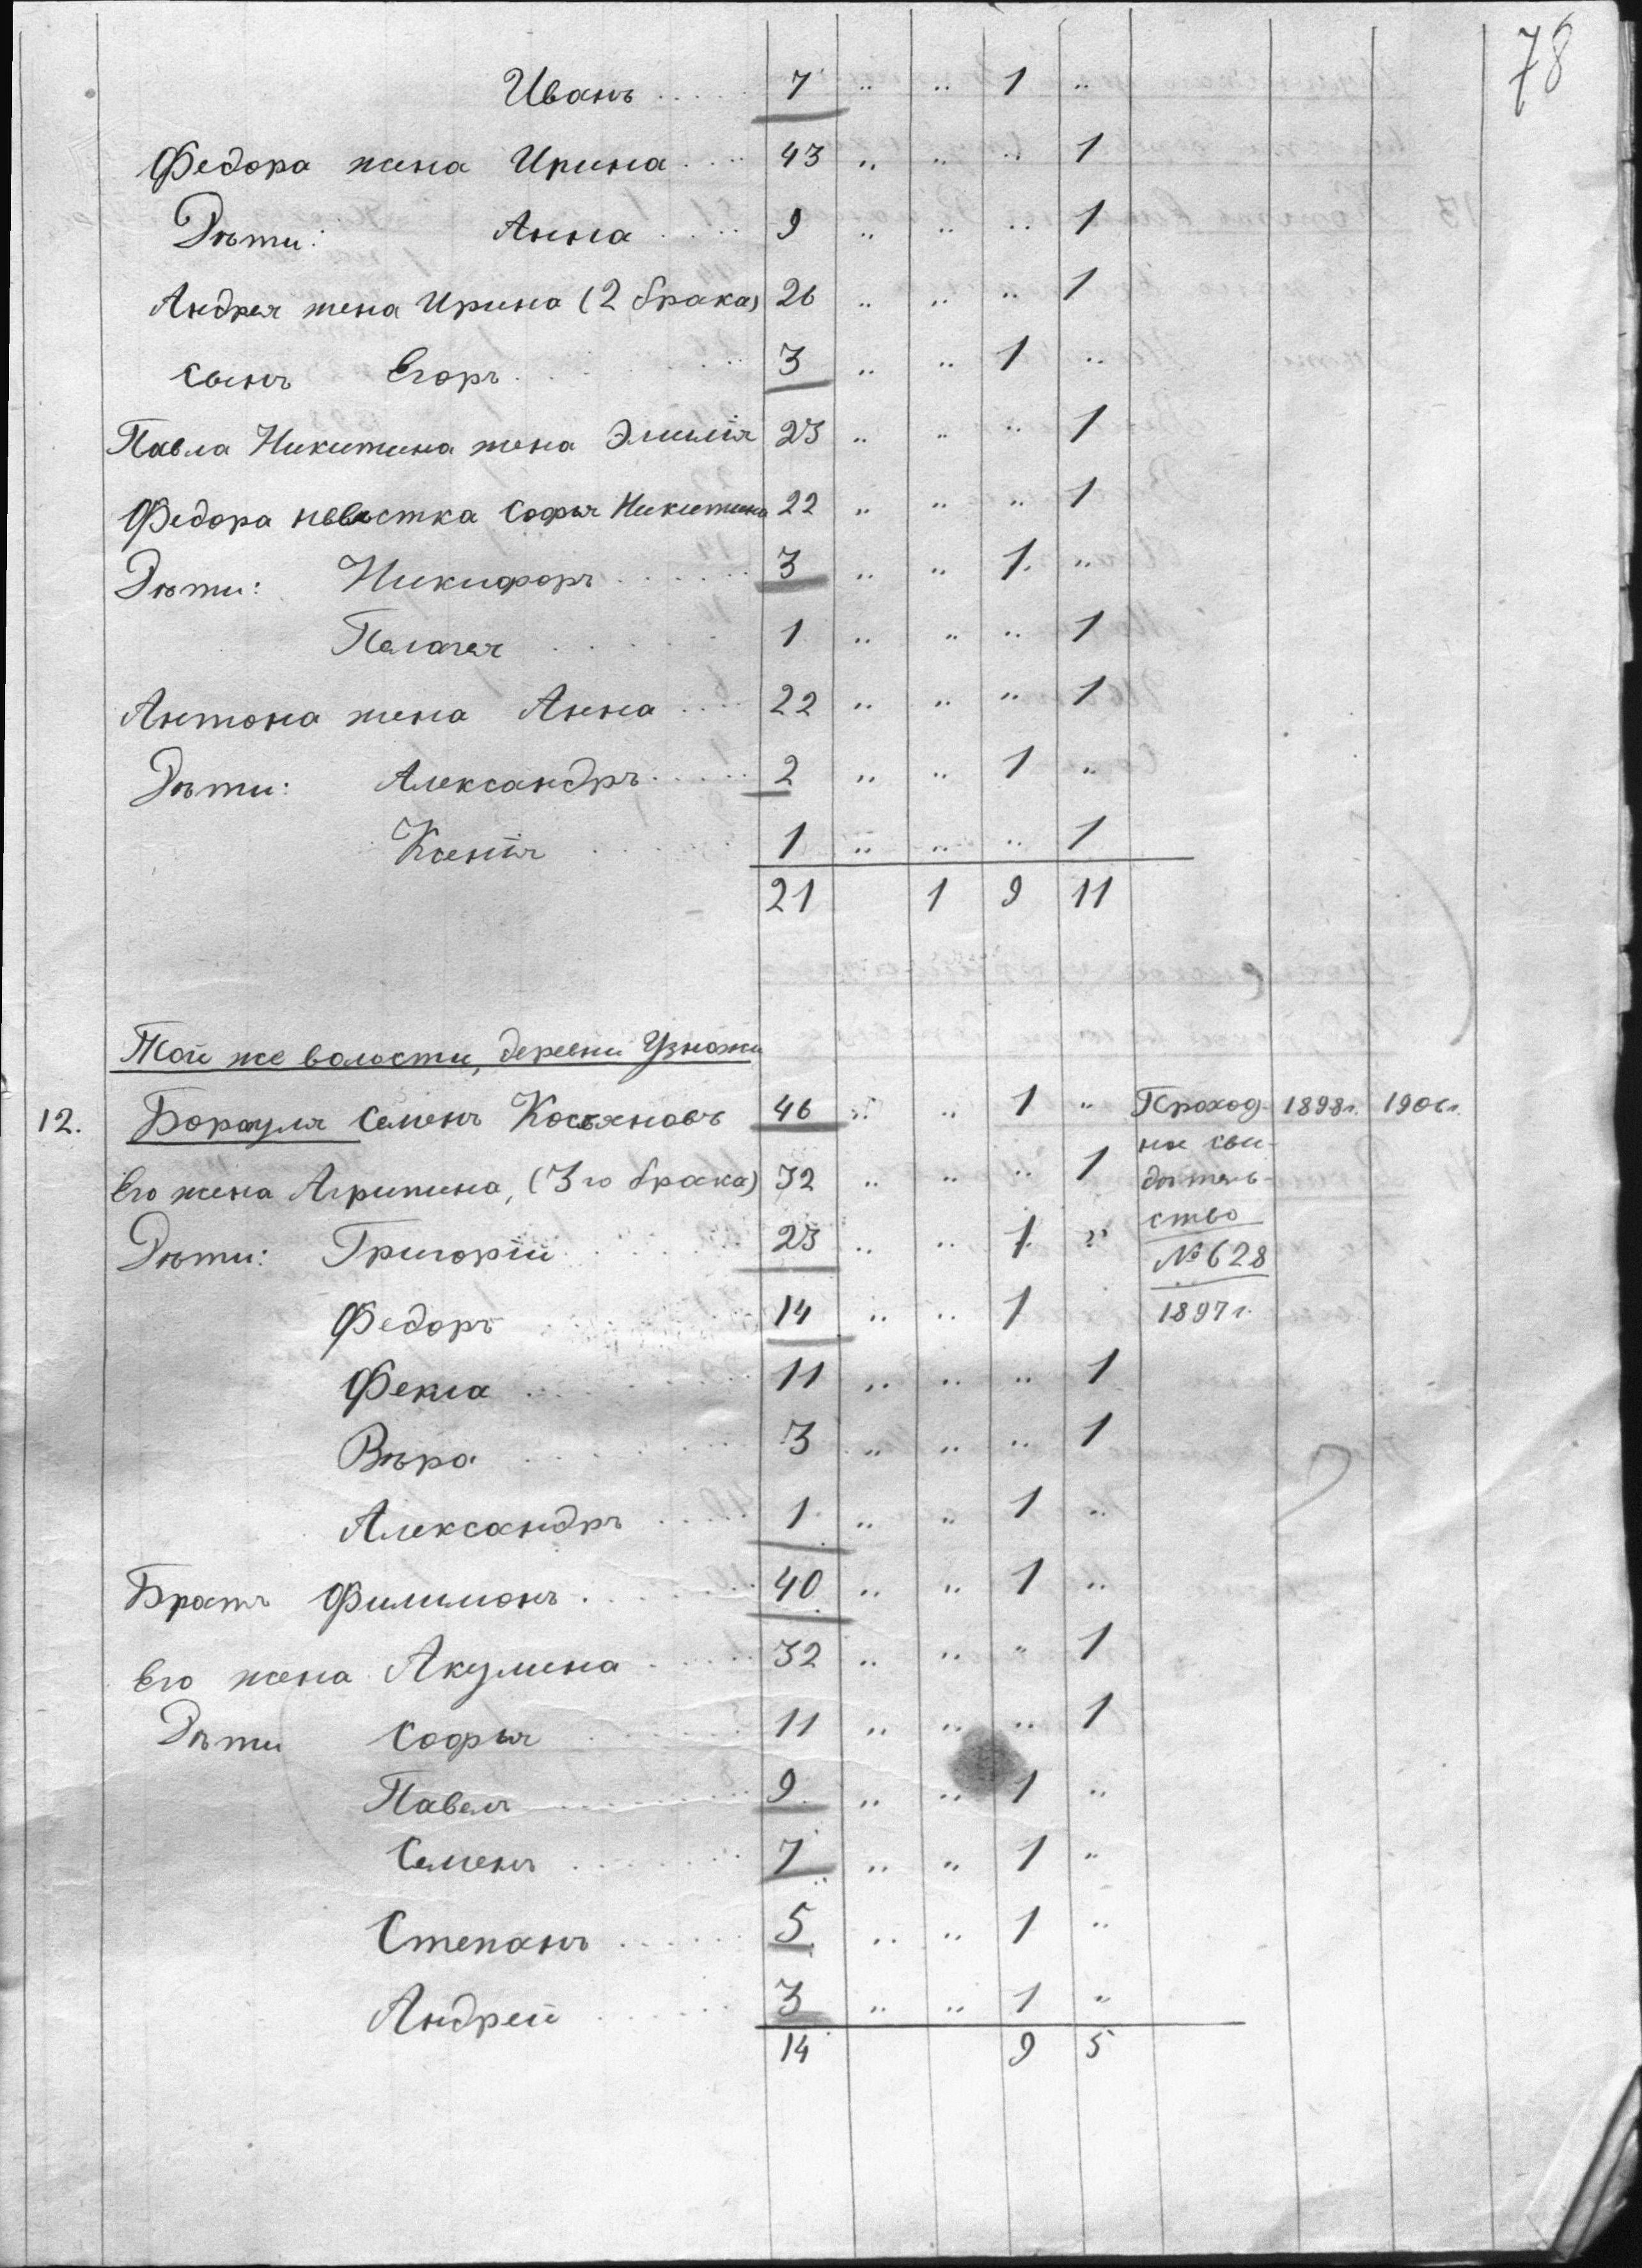 78
Иванъ ..... 7 .. .. 1 ..
Федора жена Ирина .... 43 .. .. .. 1
Дѣти: Анна ..... 9 .. .. .. 1
Андрея жена Ирина (2 брака) 26 .. .. .. 1
сынъ Егоръ ....... 3 .. .. 1 ..
Павла Никитина жена Эмилія 23 .. .. .. 1
Федора невѣстка Софья Никитина 22 .. .. .. 1
Дѣти: Никифоръ ...... 3 .. .. 1 ..
Пелагея ...... 1 .. .. .. 1
Антона жена Анна .... 22 .. .. .. 1
Дѣти: Александръ ..... 2 .. .. 1 ..
Ксенія ...... 1 .. .. .. 1
21 1 9 11
Той же волости, деревни Узножи
12. Борауля Семенъ Косьяновъ 46 .. .. 1 .. Проход- 1898 г. 1901 г.
ное сви-
Его жена Агрипина, (3го брака) 32 .. .. .. 1 дѣтель-
ство
Дѣти: Григорій ...... 23 .. .. 1 ..
№ 628
Федоръ ...... 14 .. .. 1 1897 г.
Фекла ....... 11 .. .. .. 1
Вѣра ...... 3 .. .. .. 1
Александръ ..... 1 .. .. 1 ..
Братъ Филимонъ ...... 40 .. .. 1 ..
Его жена Акулина ..... 32 .. .. .. 1
Дѣти Софья ...... 11 .. .. .. 1
Павелъ ...... 9 .. .. 1 ..
Семенъ ...... 7 .. .. 1 ..
Степанъ ...... 5 .. .. 1 ..
Андрей ..... 3 .. .. 1 ..
14 9 5